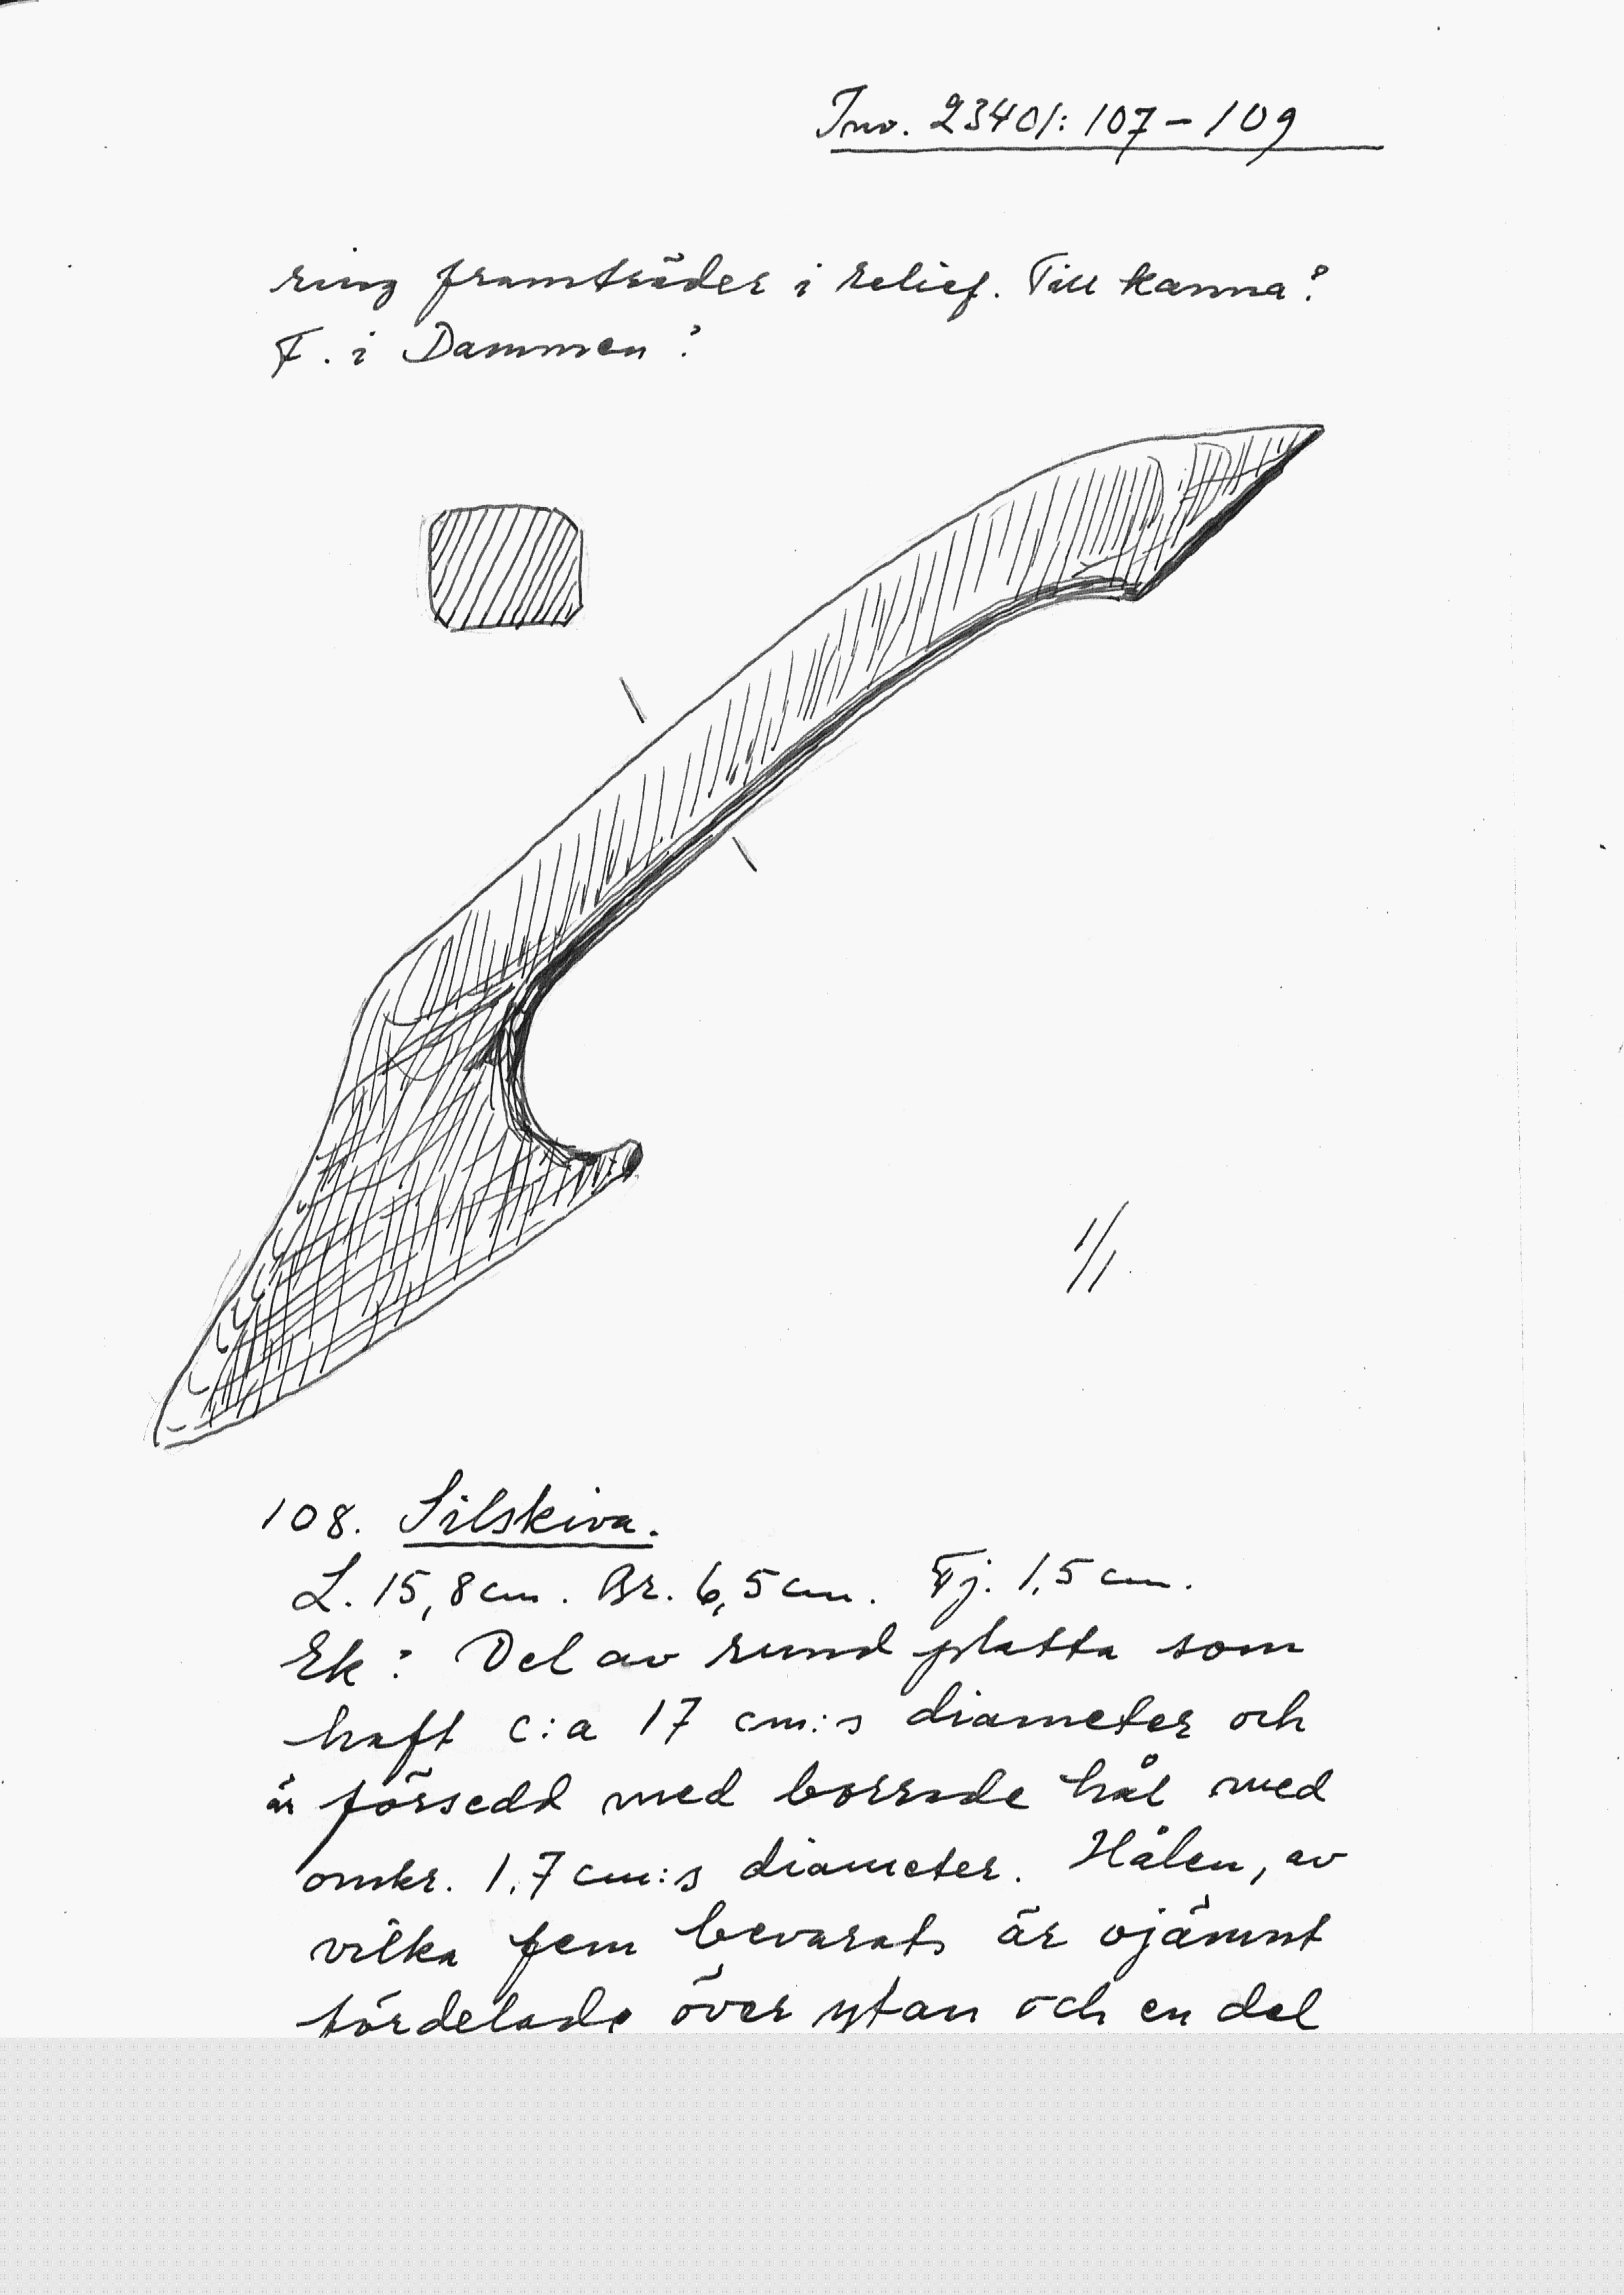 Inv. 23401:107-109
ring framträder i relief. Till kanna?
F. i Dammen?
1/1
108. Silskiva.
L. 15,8 cm. Br. 6,5 cm. Tj. 1,5 cm.
Ek? Del av rund platta som
haft c:a 17 cm:s diameter och
är försedd med borrade hål med
omkr. 1,7 cm:s diameter. Hålen, av
vilka fem bevarats är ojämnt
fördelade över ytan och en del